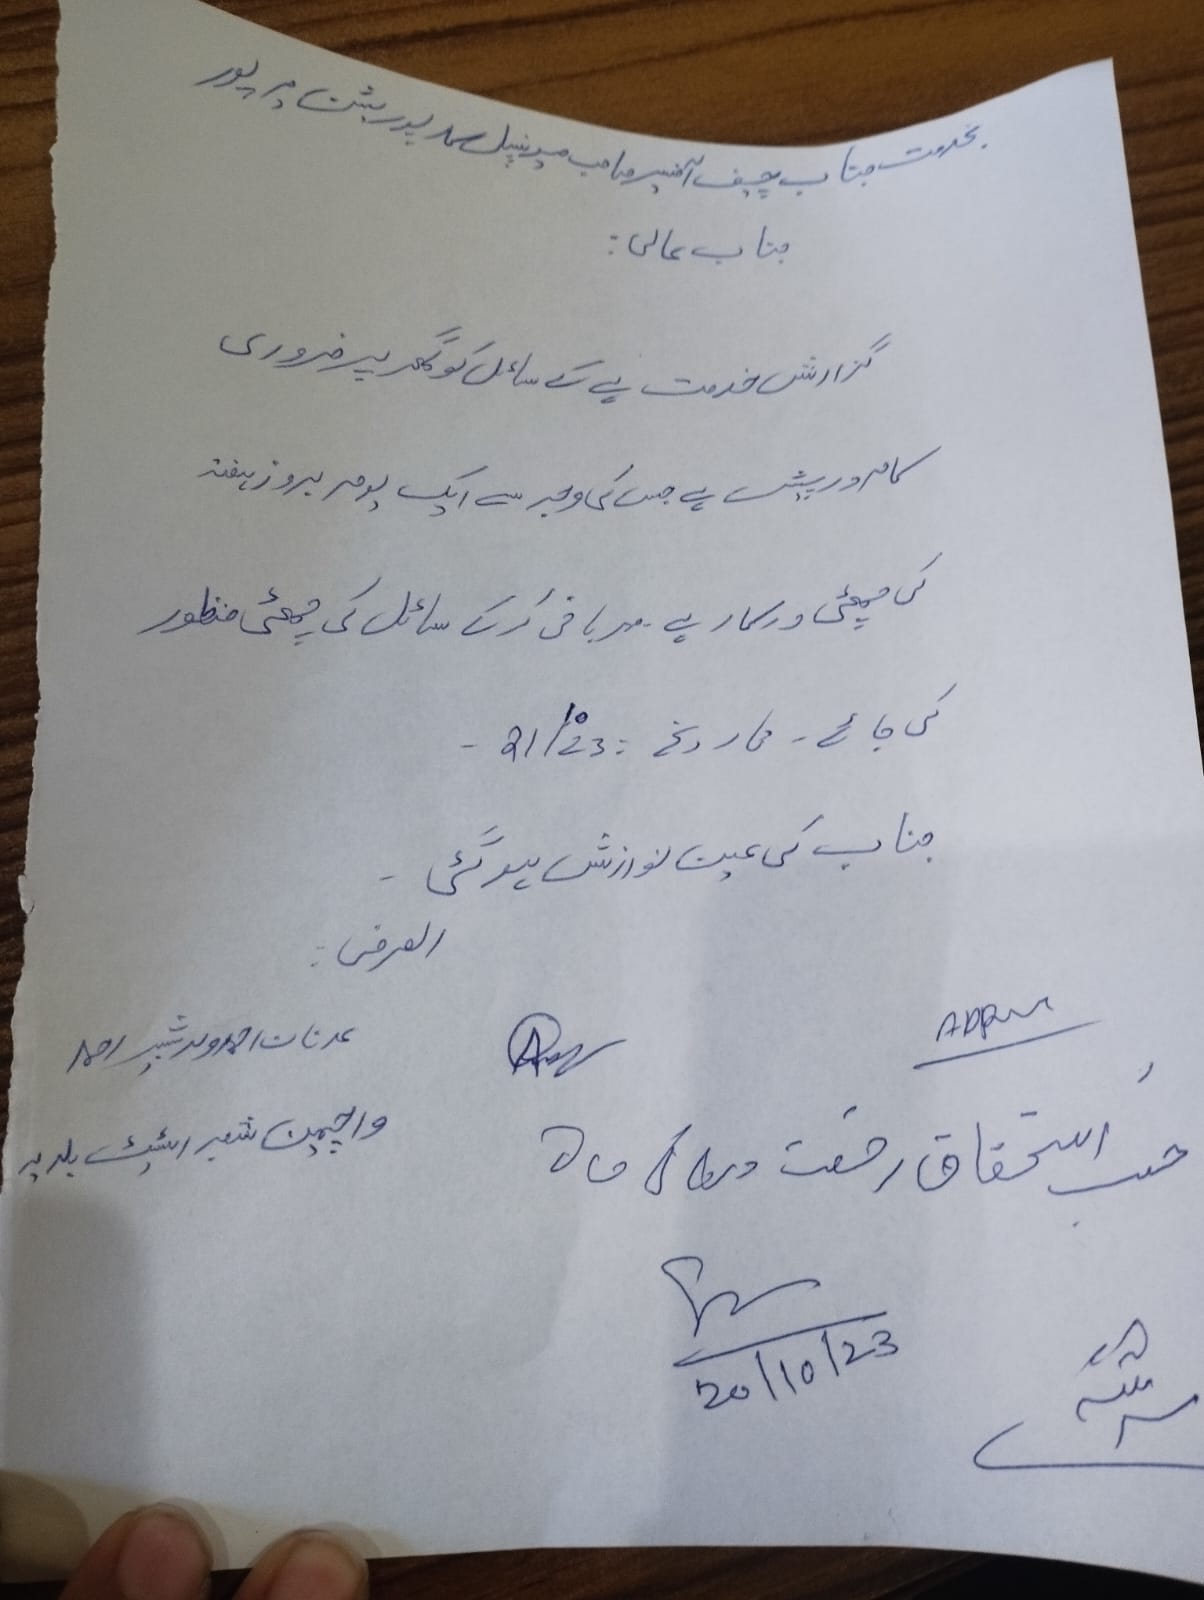 بخدمت جناب چیف آفیسر صاحب میونسپل کارپوریشن میرپور
جناب عالی:
گزارش خدمت ہے کے سائل کو گھر پر ضروری
کام درپیش ہے جس کی وجہ سے ایک یوم بروز ہفتہ
کی چھٹی درکار ہے۔ مہربانی کر کے سائل کی چھٹی منظور
کی جائے۔ تاریخ: 21/10/23 -
جناب کی عین نوازش ہو گئی -
العرض:
عدنان احمد ولد شبیر احمد
واچمین شعبہ اسٹیٹ بلدیہ
حسب استحقاق رخصت دی
20/10/23